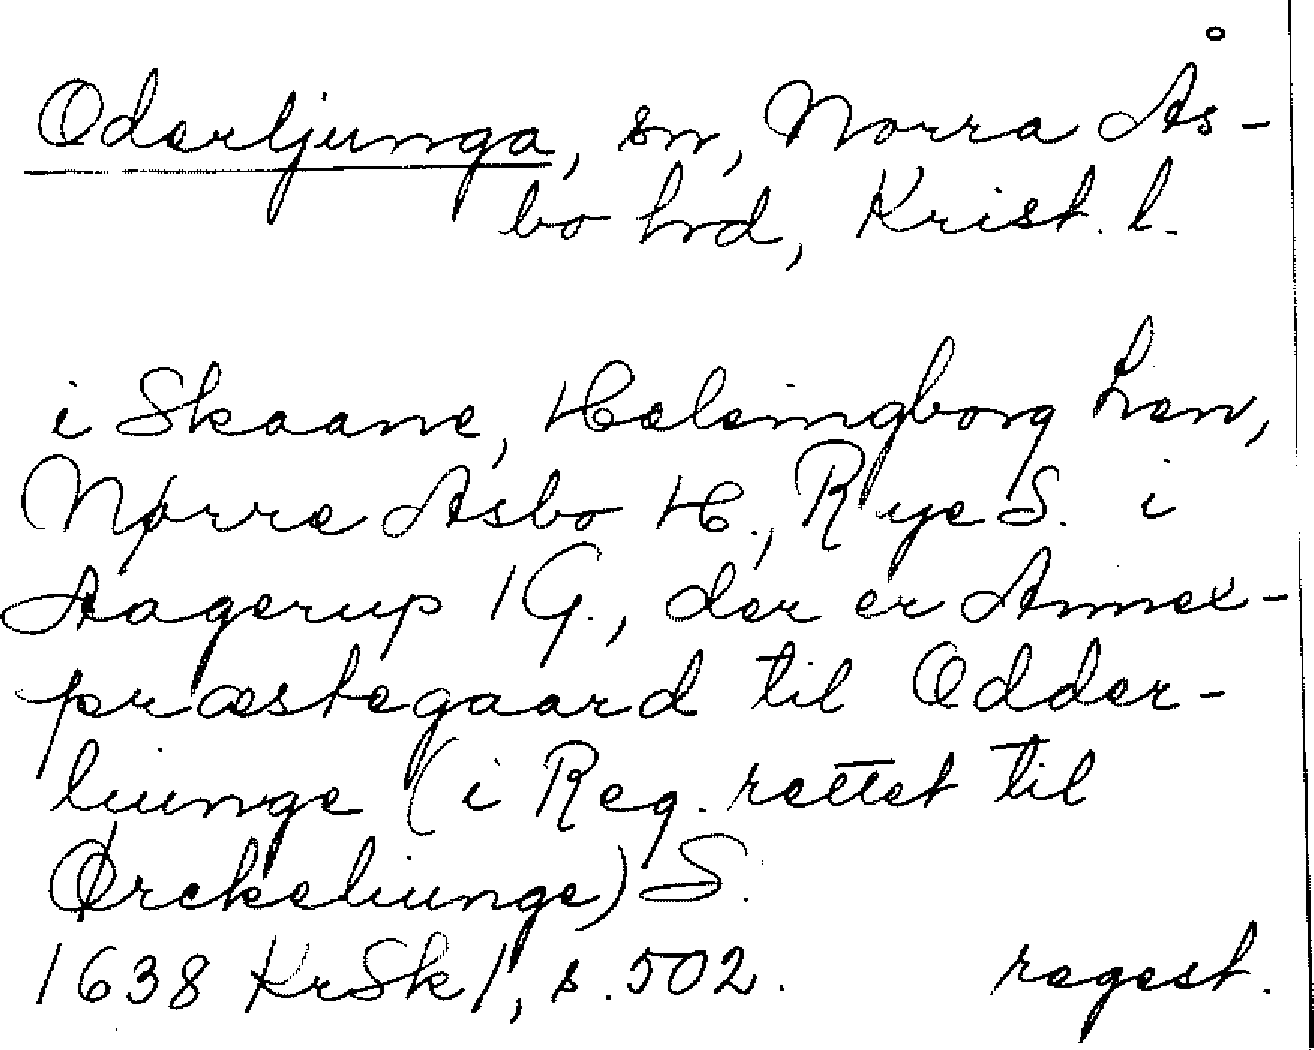 Oderljunga, sn, Norra Ås-
bo hrd, Krist. l.
i Skaane, Helsingborg Len,
Nørre Asbo H., Rye S. i
Aagerup 1 G., der er Annex-
præstegaard til Odder-
liunge (i Reg. rettet til
Ørckeliunge) S.
1638 KrSk 1, s. 502. regest.